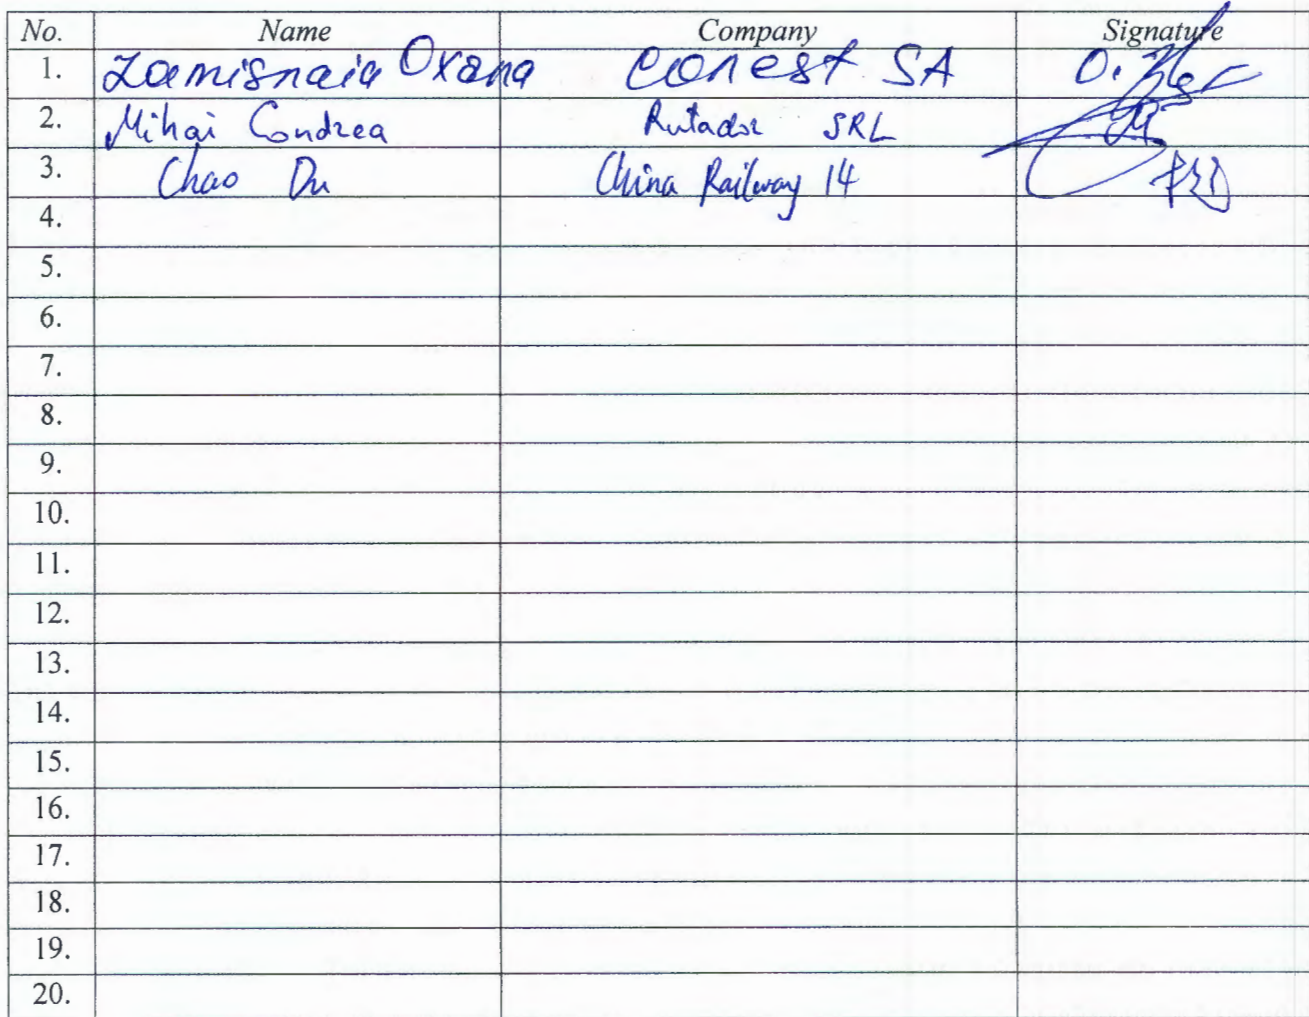 No. Name Company Signature
1. Zamisnaia Oxana Conest SA
2. Mihai Condrea Rutador SRL
3. Chao Du China Railway 14
4.
5.
6.
7.
8.
9.
10.
11.
12.
13.
14.
15.
16.
17.
18.
19.
20.